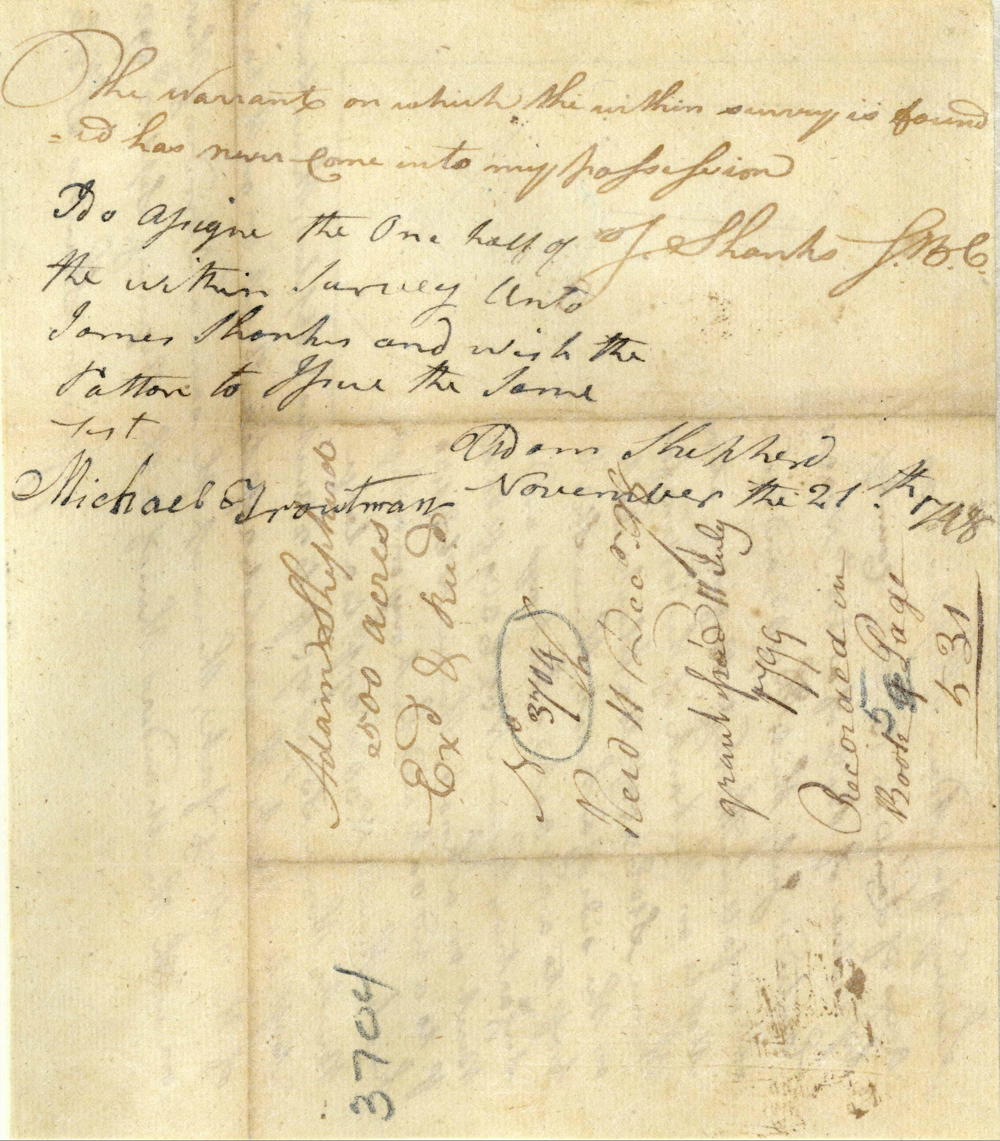 The warrant on which the within survey is found
=ed has never Come into my possession
J. Shanks S.B.C.
I do assigne the One half of
the within Survey Unto
James Shanks and wish the
Pattone to Issue the Same
Test
Adam Shepherd
Michael Troutman
November the 21.th 1798
Adam Shepherd
500 acres
Exd & Rud
No 3704
Recd 11 Decr 98
grant issd 11 July
1799
Recorded in
Book 5 Page
531
3704